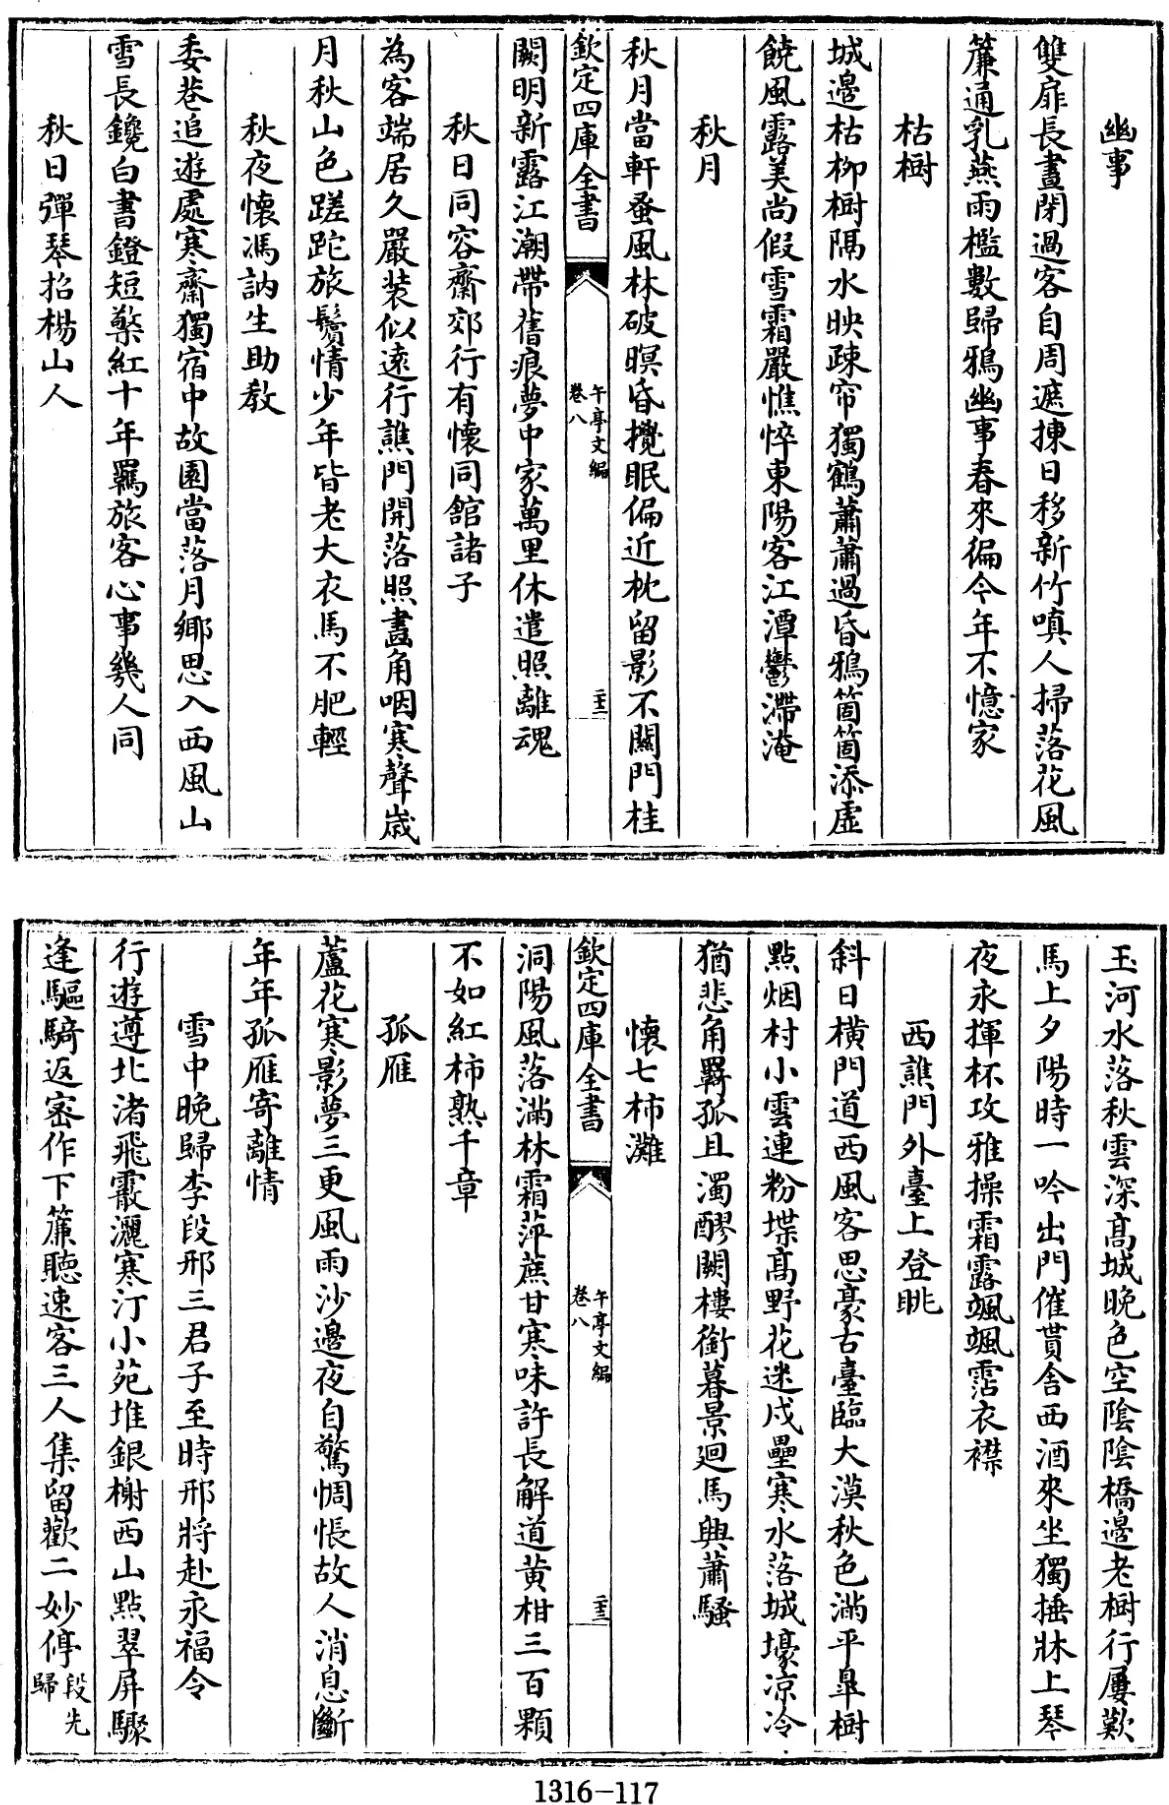 幽事
雙扉長晝閉過客自周遮揀日移新竹嗔人掃落花風
簾通乳燕雨檻數歸鴉幽事春來偏今年不憶家
枯樹
城邊枯柳樹隔水映疎帘獨鶴蕭蕭過昏鴉箇箇添虛
饒風露美尚假雪霜嚴憔悴東陽客江潭鬱滯淹
秋月
秋月當軒蚤風林破暝昏攪眠偏近枕留影不關門桂
欽定四庫全書
午亭文編
卷八
二十二
闕明新露江潮帶舊痕夢中家萬里休遣照離魂
秋日同容齋郊行有懷同館諸子
為客端居久嚴裝似遠行譙門開落照畫角咽寒聲歲
月秋山色蹉跎旅鬢情少年皆老大衣馬不肥輕
秋夜懷馮訥生助教
委巷追遊處寒齋獨宿中故園當落月鄉思入西風山
雪長鑱白書鐙短檠紅十年羈旅客心事幾人同
秋日彈琴招楊山人
玉河水落秋雲深髙城晚色空陰陰橋邊老樹行屢歎
馬上夕陽時一吟出門催貰舍西酒來坐獨捶牀上琴
夜永揮杯攻雅操霜露颯颯霑衣襟
西譙門外臺上登眺
斜日橫門道西風客思豪古臺臨大漠秋色滿平臯樹
點烟村小雲連粉堞髙野花迷戍壘寒水落城壕凉冷
猶悲角羇孤且濁醪闕樓銜暮景廻馬興蕭騷
懷七柿灘
欽定四庫全書
午亭文編
卷八
二十三
洞陽風落滿林霜萍蔗甘寒味許長解道黄柑三百顆
不如紅柿熟千章
孤雁
蘆花寒影夢三更風雨沙邊夜自驚惆悵故人消息斷
年年孤雁寄離情
雪中晚歸李段邢三君子至時邢將赴永福令
行遊遵北渚飛霰灑寒汀小苑堆銀榭西山點翠屏驟
逢驅騎返密作下簾聽速客三人集留歡二妙停段先歸
1316-117